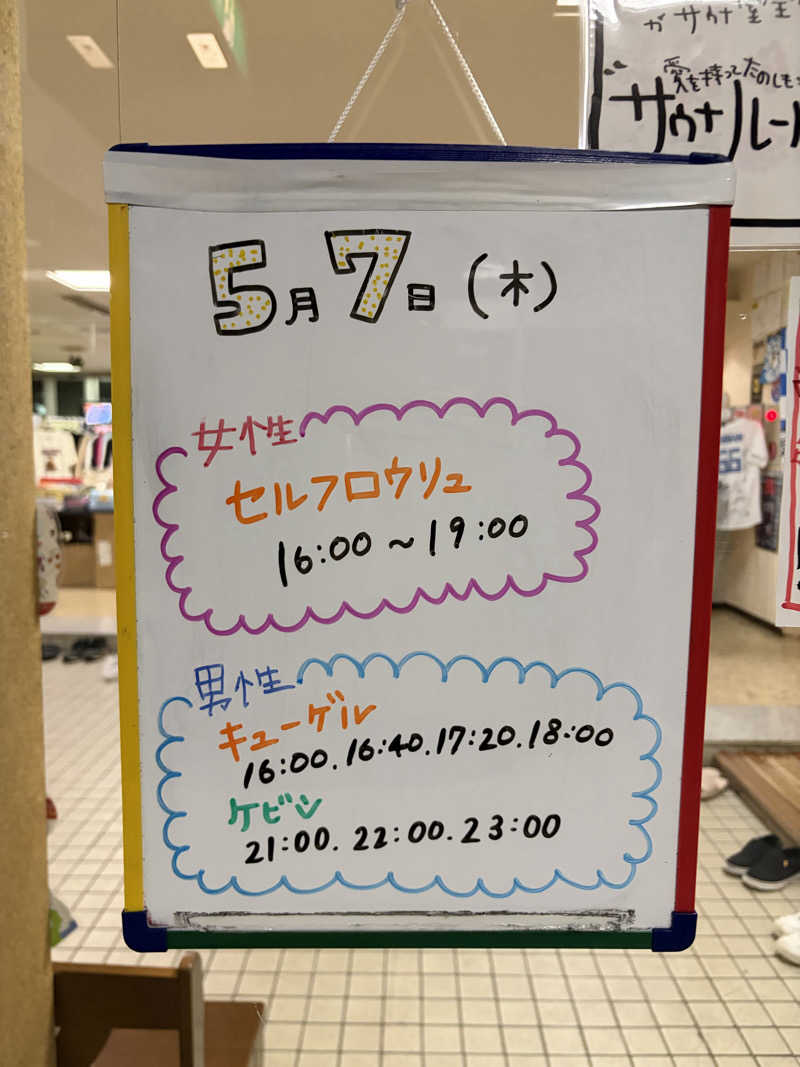 がサウナ室
愛を持ってたのしも
サウナルール
5月7日(木)
女性
セルフロウリュ
16:00~19:00
男性
キューゲル
16:00.16:40.17:20.18:00
ケビン
21:00.22:00.23:00